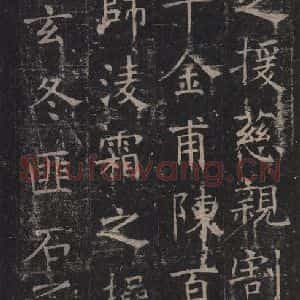 之援慈親割
千金甫陳百
師淩霜之操
玄冬匪石之
Shufawang.CN